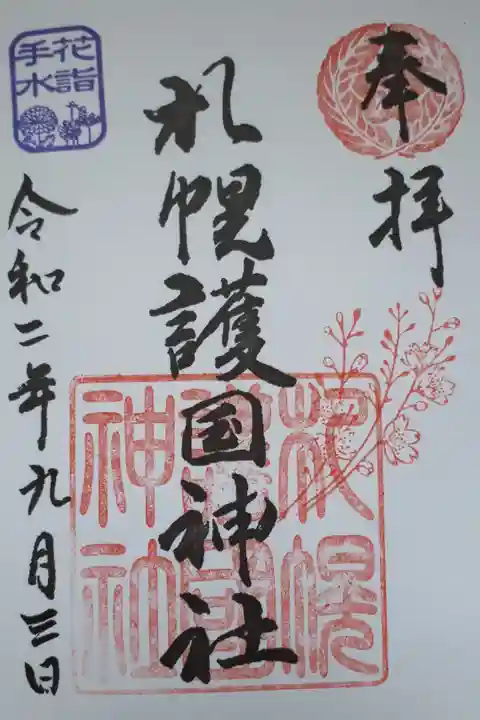 奉拝
札幌護国神社
令和二年九月三日
花詣
手水
札幌
護国
神社